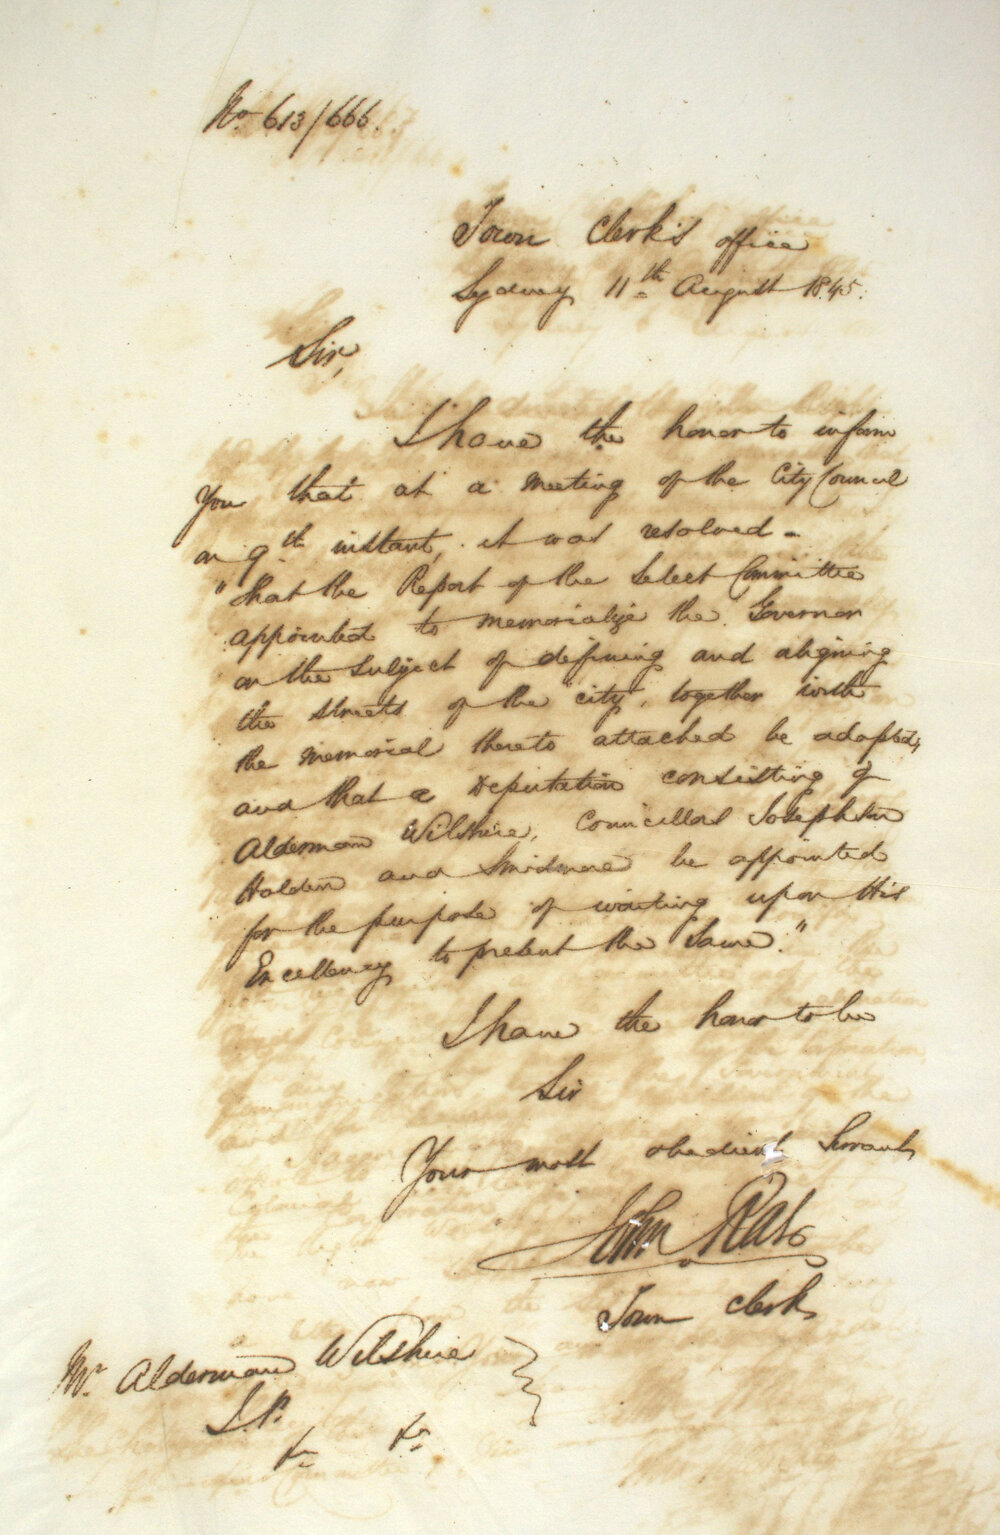 No. 613/666.
Town Clerk's office
Sydney 11th August 1845.
Sir,
I have the honor to inform
You that at a Meeting of the City Council
on 9th instant, it was resolved -
"That the Report of the Select Committee
appointed to memorialize the Governor
on the subject of defining and aligning
the streets of the city, together with
the Memorial thereto attached be adopted,
and that a Deputation consisting of
Alderman Wilshire, Councillors Josephson
Holden and Smidmore be appointed
for the purpose of waiting upon His
Excellency to present the Same."
I have the honor to be
Sir
Your most obedient Servant
John Rae
Town Clerk
Mr. Alderman Wilshire
J.P.